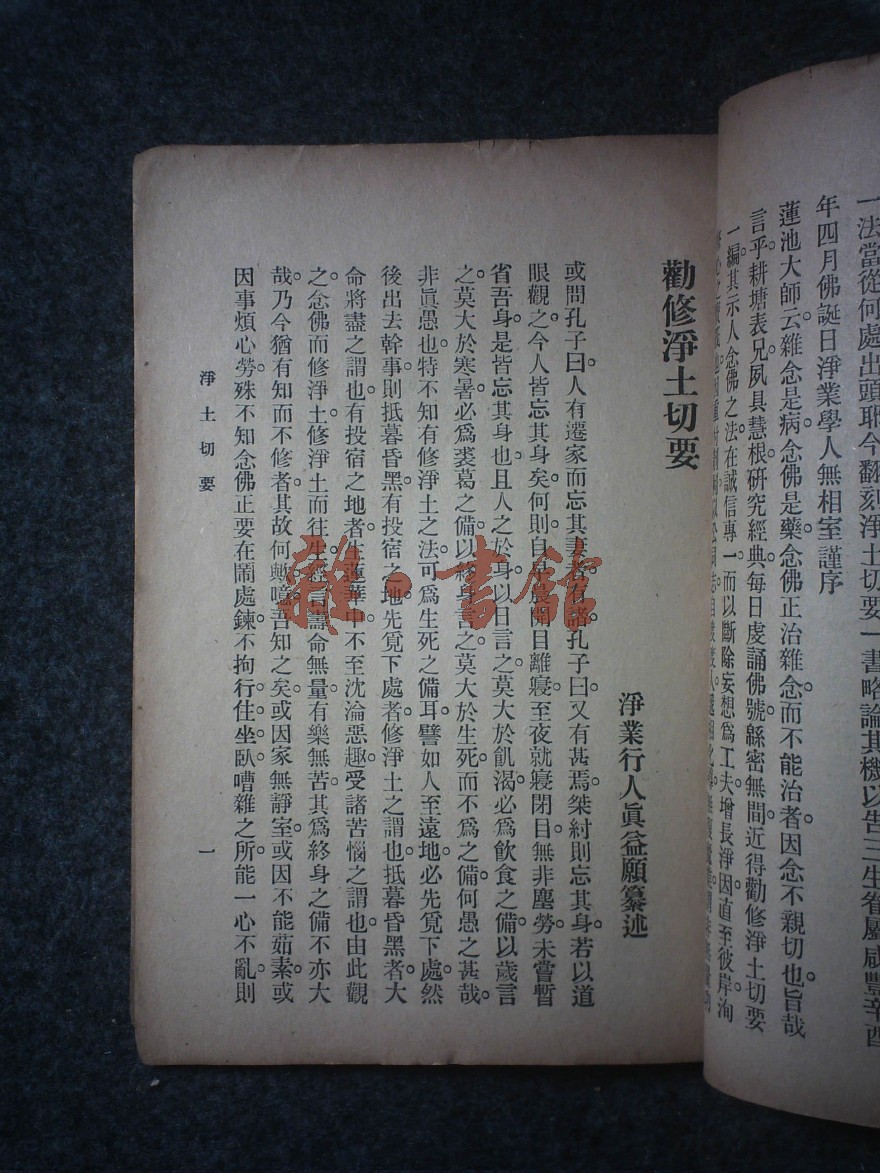 一法當從何處出頭耶今翻刻淨土切要一書略論其機以告三生眷屬咸豐辛酉
年四月佛誕日淨業學人無相室謹序
蓮池大師云雜念是病念佛是藥念佛正治雜念而不能治者因念不親切也旨哉
言乎耕塘表兄夙具慧根研究經典每日虔誦佛號緜密無間近得勸修淨土切要
一編其示人念佛之法在誠信專一而以斷除妄想爲工夫增長淨因直至彼岸洵
勸修淨土切要
淨業行人眞益願纂述
或問孔子曰人有遷家而忘其妻者有諸孔子曰又有甚焉桀紂則忘其身若以道
眼觀之今人皆忘其身矣何則自早晨開目離寢至夜就寢閉目無非塵勞未嘗暫
省吾身是皆忘其身也且人之於身以日言之莫大於飢渴必爲飮食之備以歲言
之莫大於寒暑必爲裘葛之備以終身言之莫大於生死而不爲之備何愚之甚哉
非眞愚也特不知有修淨土之法可爲生死之備耳譬如人至遠地必先覓下處然
後出去幹事則抵暮昏黑有投宿之地先覓下處者修淨土之謂也抵暮昏黑者大
命將盡之謂也有投宿之地者生蓮華中不至沈淪惡趣受諸苦惱之謂也由此觀
之念佛而修淨土修淨土而往生經言壽命無量有樂無苦其爲終身之備不亦大
哉乃今猶有知而不修者其故何歟噫吾知之矣或因家無靜室或因不能茹素或
因事煩心勞殊不知念佛正要在鬧處鍊不拘行住坐臥嘈雜之所能一心不亂則
淨土切要
一
雜·書館